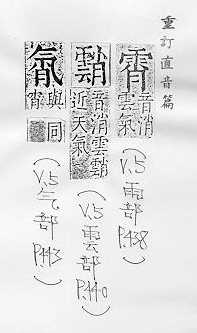 重訂直音篇
霄
音消
雲氣
(V.5 雨部 P.438)
音消雲
近天氣
(V.5 雲部 P.440)
與
同
(V.5 气部 P.443)